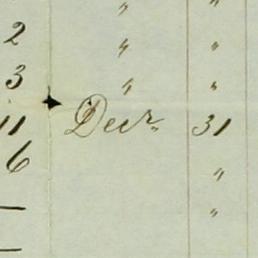 " "
2 " "
3 " "
11 Decr. 31
6 "
"